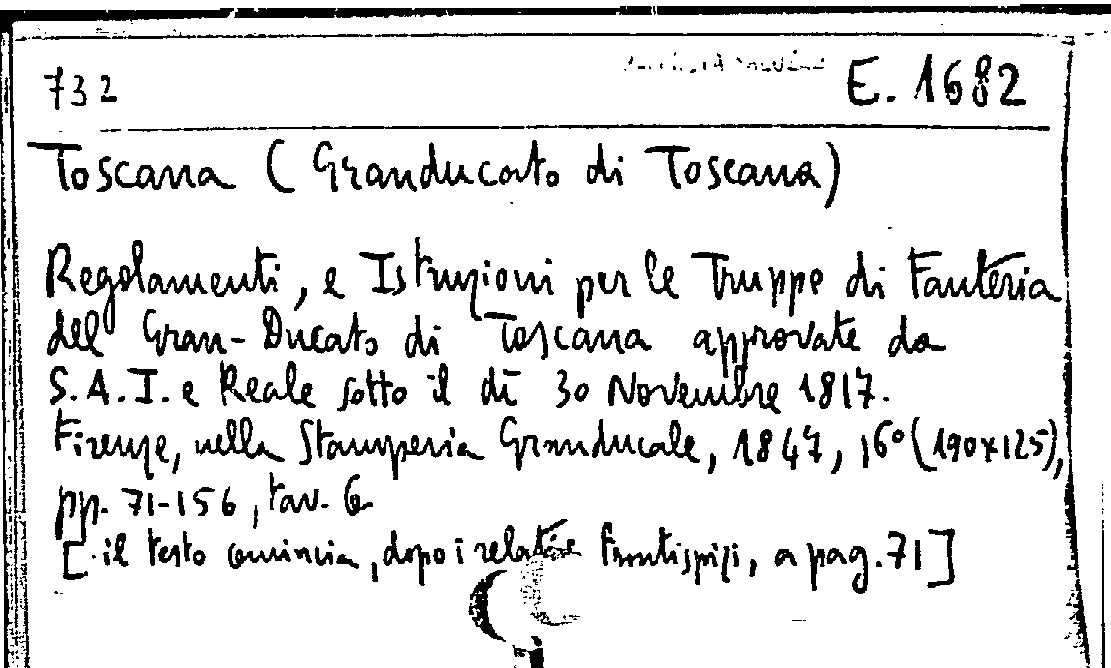 732 E. 1682
Toscana (Granducato di Toscana)
Regolamenti, e Istruzioni per le Truppe di Fanteria
del Gran-Ducato di Toscana approvate da
S.A.I. e Reale sotto il dì 30 Novembre 1817.
Firenze, nella Stamperia Granducale, 1847, 16° (190x125),
pp. 71-156, tav. 6
[il testo comincia, dopo i relativi frontispizi, a pag. 71]